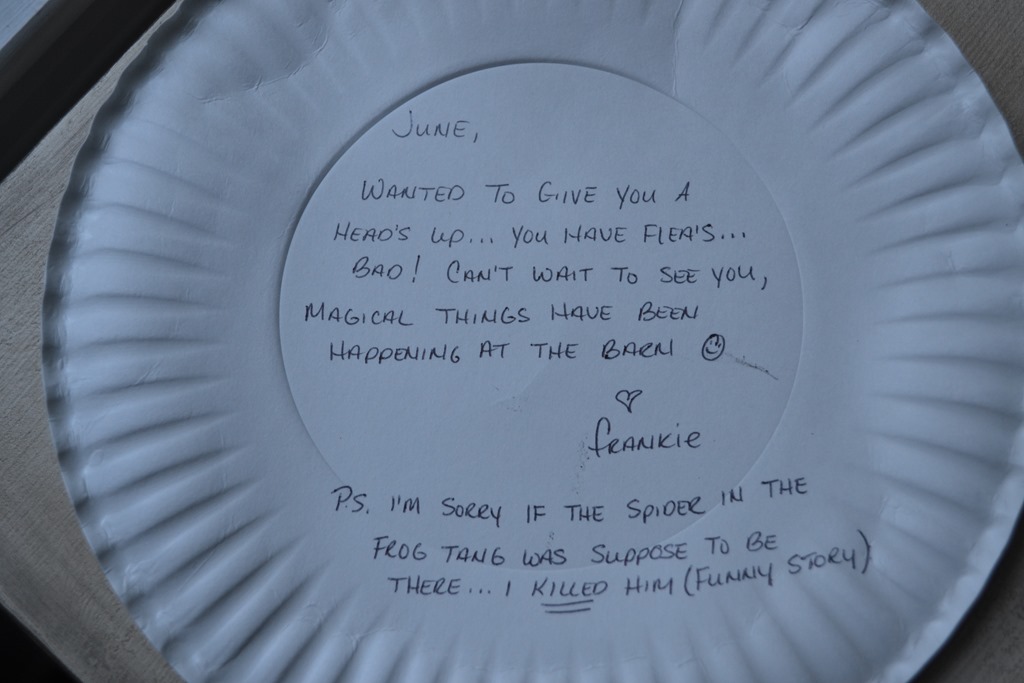 JUNE,
WANTED TO GIVE YOU A
HEAD'S UP... YOU HAVE FLEA'S...
BAD! CAN'T WAIT TO SEE YOU,
MAGICAL THINGS HAVE BEEN
HAPPENING AT THE BARN ☺
♡
FRANKIE
P.S. I'M SORRY IF THE SPIDER IN THE
FROG TANG WAS SUPPOSE TO BE
THERE... I KILLED HIM (FUNNY STORY)